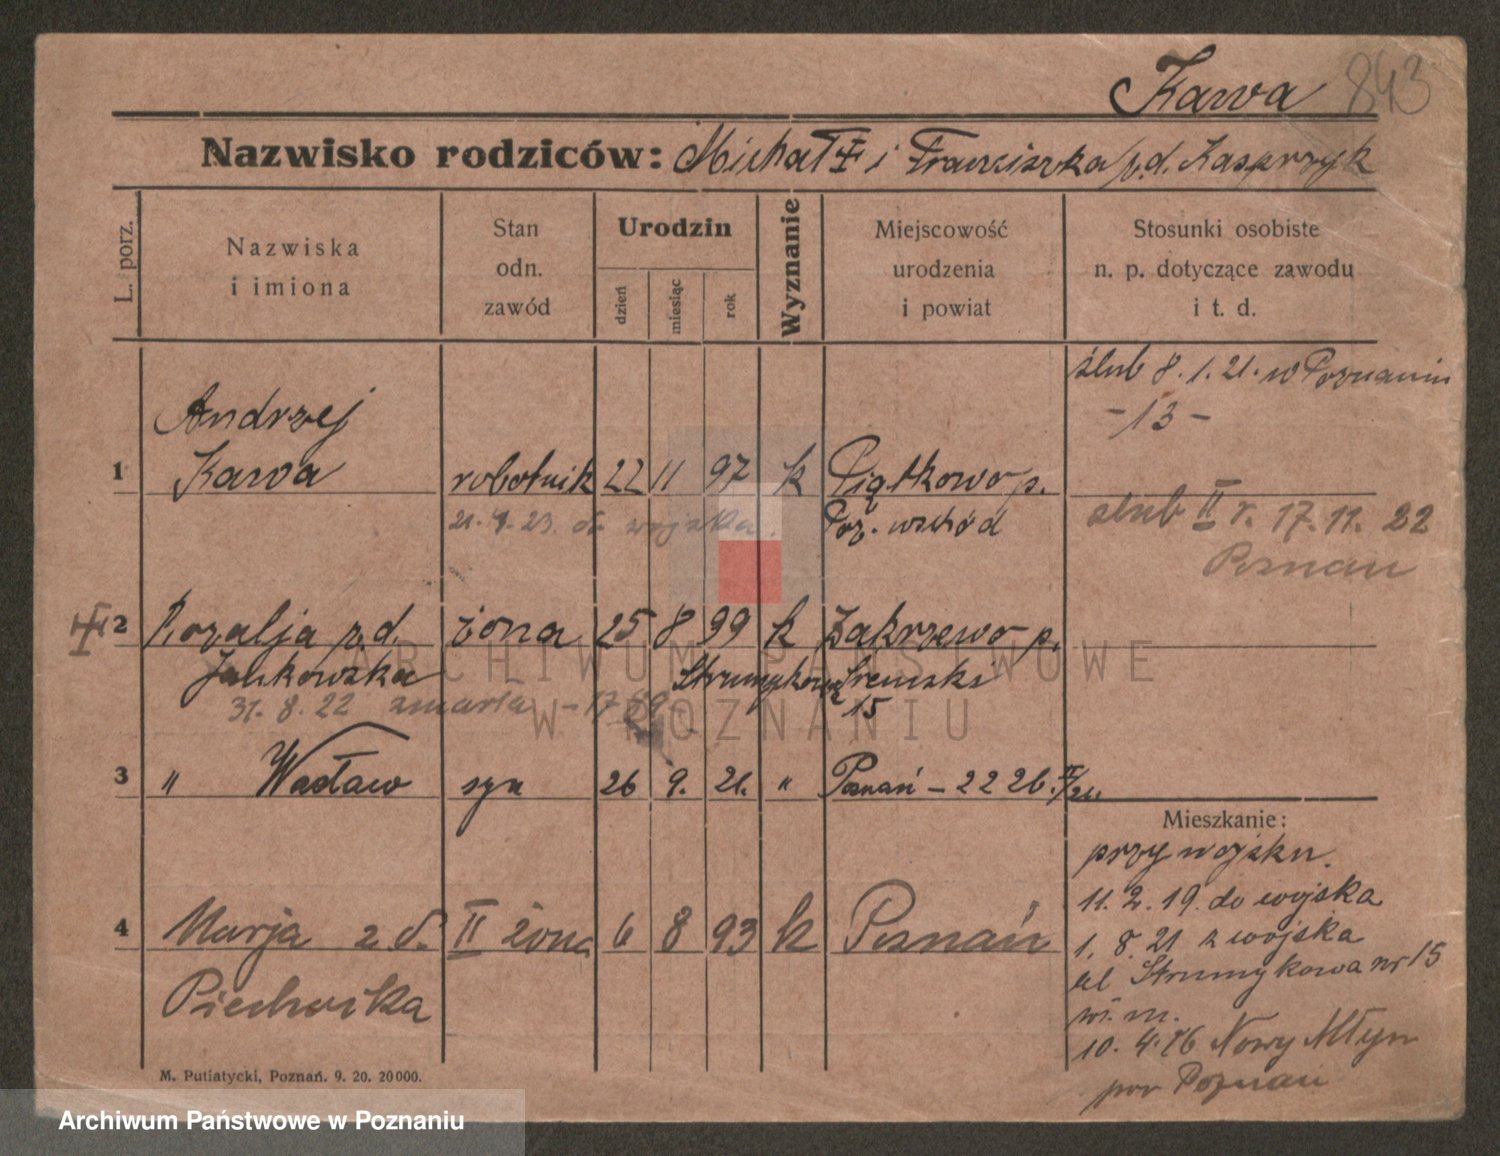 Kawa 843
Nazwisko rodziców: Michał i Franciszka p.d. Kasprzyk
L. porz.
Nazwiska
i imiona
Stan
odn.
zawód
Urodzin
dzień
miesiąc
rok
Wyznanie
Miejscowość
urodzenia
i powiat
Stosunki osobiste
n. p. dotyczące zawodu
i t. d.
ślub 8. 1. 21. w Poznaniu
- 13 -
Andrzej
1 Kawa robotnik 22 11 97 k Piątkowo p.
Poz. wschód
do wojska.
ślub II r. 17. 11. 22
Poznań
2 Rozalja z d. żona 25 8 99 k Zakrzewo p.
Jankowska Strumykowa Śremski
15
31. 8. 22 zmarła
3 " Wacław syn 26 9. 21. " Poznań - 22 26.
Mieszkanie:
przy wojsku.
11. 2. 19. do wojska
1. 8. 21 z wojska
ul Strumykowa nr 15
w. m.
10. 4. Nowy Młyn
pow Poznań
4 Marja z d. II żona 6 8 93 k Poznań
Piechocka
M. Putiatycki, Poznań. 9. 20. 20 000.
ARCHIWUM PAŃSTWOWE
W POZNANIU
Archiwum Państwowe w Poznaniu